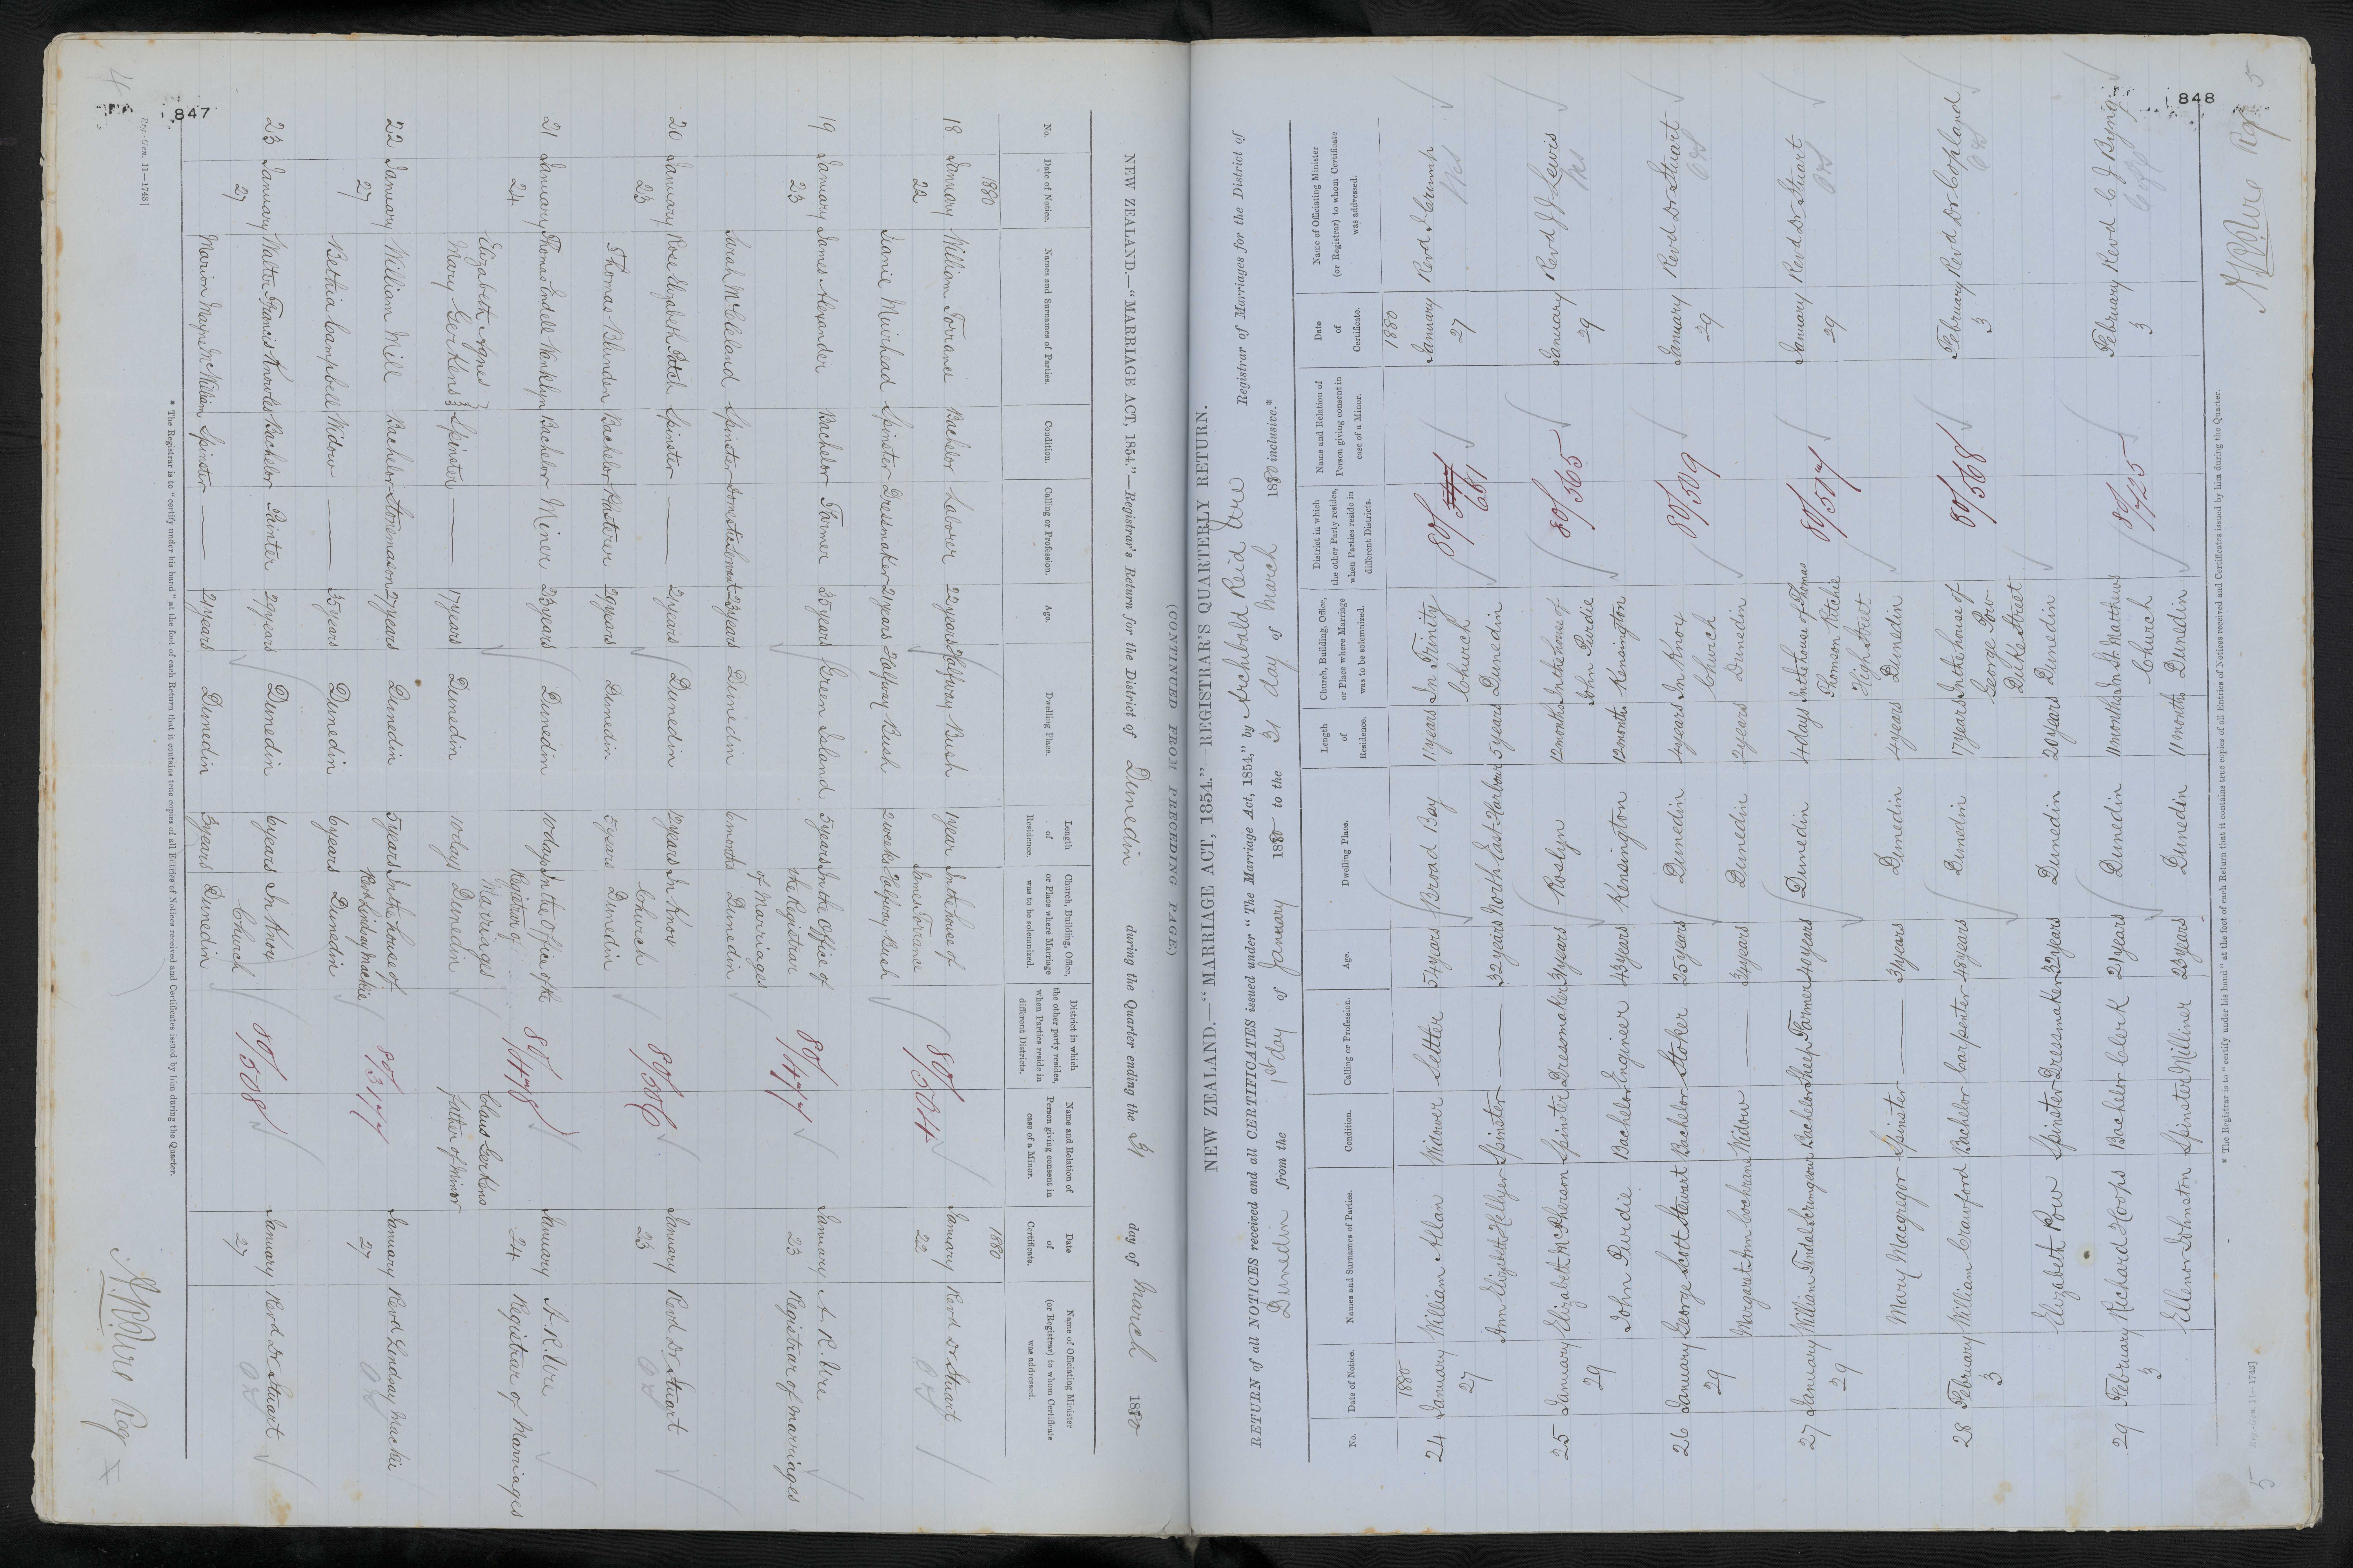 847
4
NEW ZEALAND.—"MARRIAGE ACT, 1854."—Registrar's Return for the District of Dunedin during the Quarter ending the 31 day of March 1880
No. Date of Notice. Names and Surnames of Parties. Condition. Calling or Profession. Age. Dwelling Place. Length of Residence. Church, Building, Office, or Place where Marriage was to be solemnized. District in which the other party resides, when Parties reside in different Districts. Name and Relation of Person giving consent in case of a Minor. Date of Certificate. Name of Officiating Minister (or Registrar) to whom Certificate was addressed.
1880 1880
18 January William Torrance Bachelor Labourer 22 years Halfway Bush 1 year In the house of 80/504 January Revd Dr Stuart
22 James Torrance 22
Jeanie Muirhead Spinster Dressmaker 21 years Halfway Bush 2 weeks Halfway Bush
19 January James Alexander Bachelor Farmer 35 years Green Island 5 years In the Office of 80/477 January A. R. Ure
23 the Registrar 23 Registrar of Marriages
of Marriages
Sarah McCleland Spinster Domestic Servant 23 years Dunedin 6 months Dunedin
20 January Rose Elizabeth Spinster — 21 years Dunedin 12 years In Knox 80/506 January Revd Dr Stuart
23 Church 23
Thomas Blunden Bachelor Plasterer 29 years Dunedin 5 years Dunedin
21 January Thomas Bachelor Miner 23 years Dunedin 10 days In the Office of the 80/478 January A. R. Ure
24 Registrar of 24 Registrar of Marriages
Elizabeth Agnes Marriages Claus Gerkens
Mary Gerkens Spinster — 17 years Dunedin 10 days Dunedin father of Minor
22 January William Mill Bachelor Stonemason 27 years Dunedin 5 years In the house of January Revd Lindsay Mackie
27 Revd Lindsay Mackie 27
Bethia Campbell Widow — 35 years Dunedin 6 years Dunedin
23 January Walter Francis Knowles Bachelor Painter 29 years Dunedin 6 years In Knox 80/508 January Revd Dr Stuart
27 Church 27
Marion Mayne McWilliam Spinster — 21 years Dunedin 3 years Dunedin
* The Registrar is to "certify under his hand" at the foot of each Return that it contains true copies of all Entries of Notices received and Certificates issued by him during the Quarter.
Reg.-Gen. 11—1743]
A R Ure Reg
(CONTINUED FROM PRECEDING PAGE.)
848
5
NEW ZEALAND.—"MARRIAGE ACT, 1854."—REGISTRAR'S QUARTERLY RETURN.
RETURN of all NOTICES received and all CERTIFICATES issued under "The Marriage Act, 1854," by Archibald Reid Ure Registrar of Marriages for the District of
Dunedin from the 1st day of January 1880 to the 31 day of March 1880 inclusive.*
No. Date of Notice. Names and Surnames of Parties. Condition. Calling or Profession. Age. Dwelling Place. Length of Residence. Church, Building, Office, or Place where Marriage was to be solemnized. District in which the other Party resides, when Parties reside in different Districts. Name and Relation of Person giving consent in case of a Minor. Date of Certificate. Name of Officiating Minister (or Registrar) to whom Certificate was addressed.
1880 1880
24 January William Allan Widower Settler 54 years Broad Bay 11 years In Trinity 80/681 January Revd
27 Church 27
Ann Elizabeth Hellyer Spinster — 32 years North East Harbour 5 years Dunedin
25 January Elizabeth McPherson Spinster Dressmaker 31 years Roslyn 12 months In the house of 80/565 January Revd J J Lewis
29 John Purdie 29
John Purdie Bachelor Engineer 43 years Kensington 12 months Kensington
26 January George Scott Stewart Bachelor Stoker 25 years Dunedin 4 years In Knox 80/509 January Revd Dr Stuart
29 Church 29
Margaret Ann Cochrane Widow — 34 years Dunedin 2 years Dunedin
27 January William Tindal Scrimgeour Bachelor Sheep Farmer 40 years Dunedin 4 days In the house of Thomas 80/507 January Revd Dr Stuart
29 Thomson Ritchie 29
High Street
Mary Macgregor Spinster — 31 years Dunedin 4 years Dunedin
28 February William Crawford Bachelor Carpenter 48 years Dunedin 17 years In the house of 80/568 February Revd Dr Copland
3 George Pow 3
Duke Street
Elizabeth Pow Spinster Dressmaker 32 years Dunedin 20 years Dunedin
29 February Richard Hoops Bachelor Clerk 21 years Dunedin 11 months In St. Matthews 80/725 February Revd C J Byng
3 Church 3
Ellenor Johnston Spinster Milliner 23 years Dunedin 11 months Dunedin
* The Registrar is to "certify under his hand" at the foot of each Return that it contains true copies of all Entries of Notices received and Certificates issued by him during the Quarter.
Reg.-Gen. 11—1743]
A R Ure Reg
5